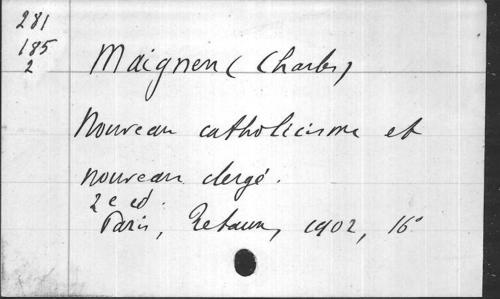 281
185
2
Maignen (Charles)
Nouveau catholicisme et
nouveau clergé.
2e ed.
Paris, Retaux, 1902, 16°